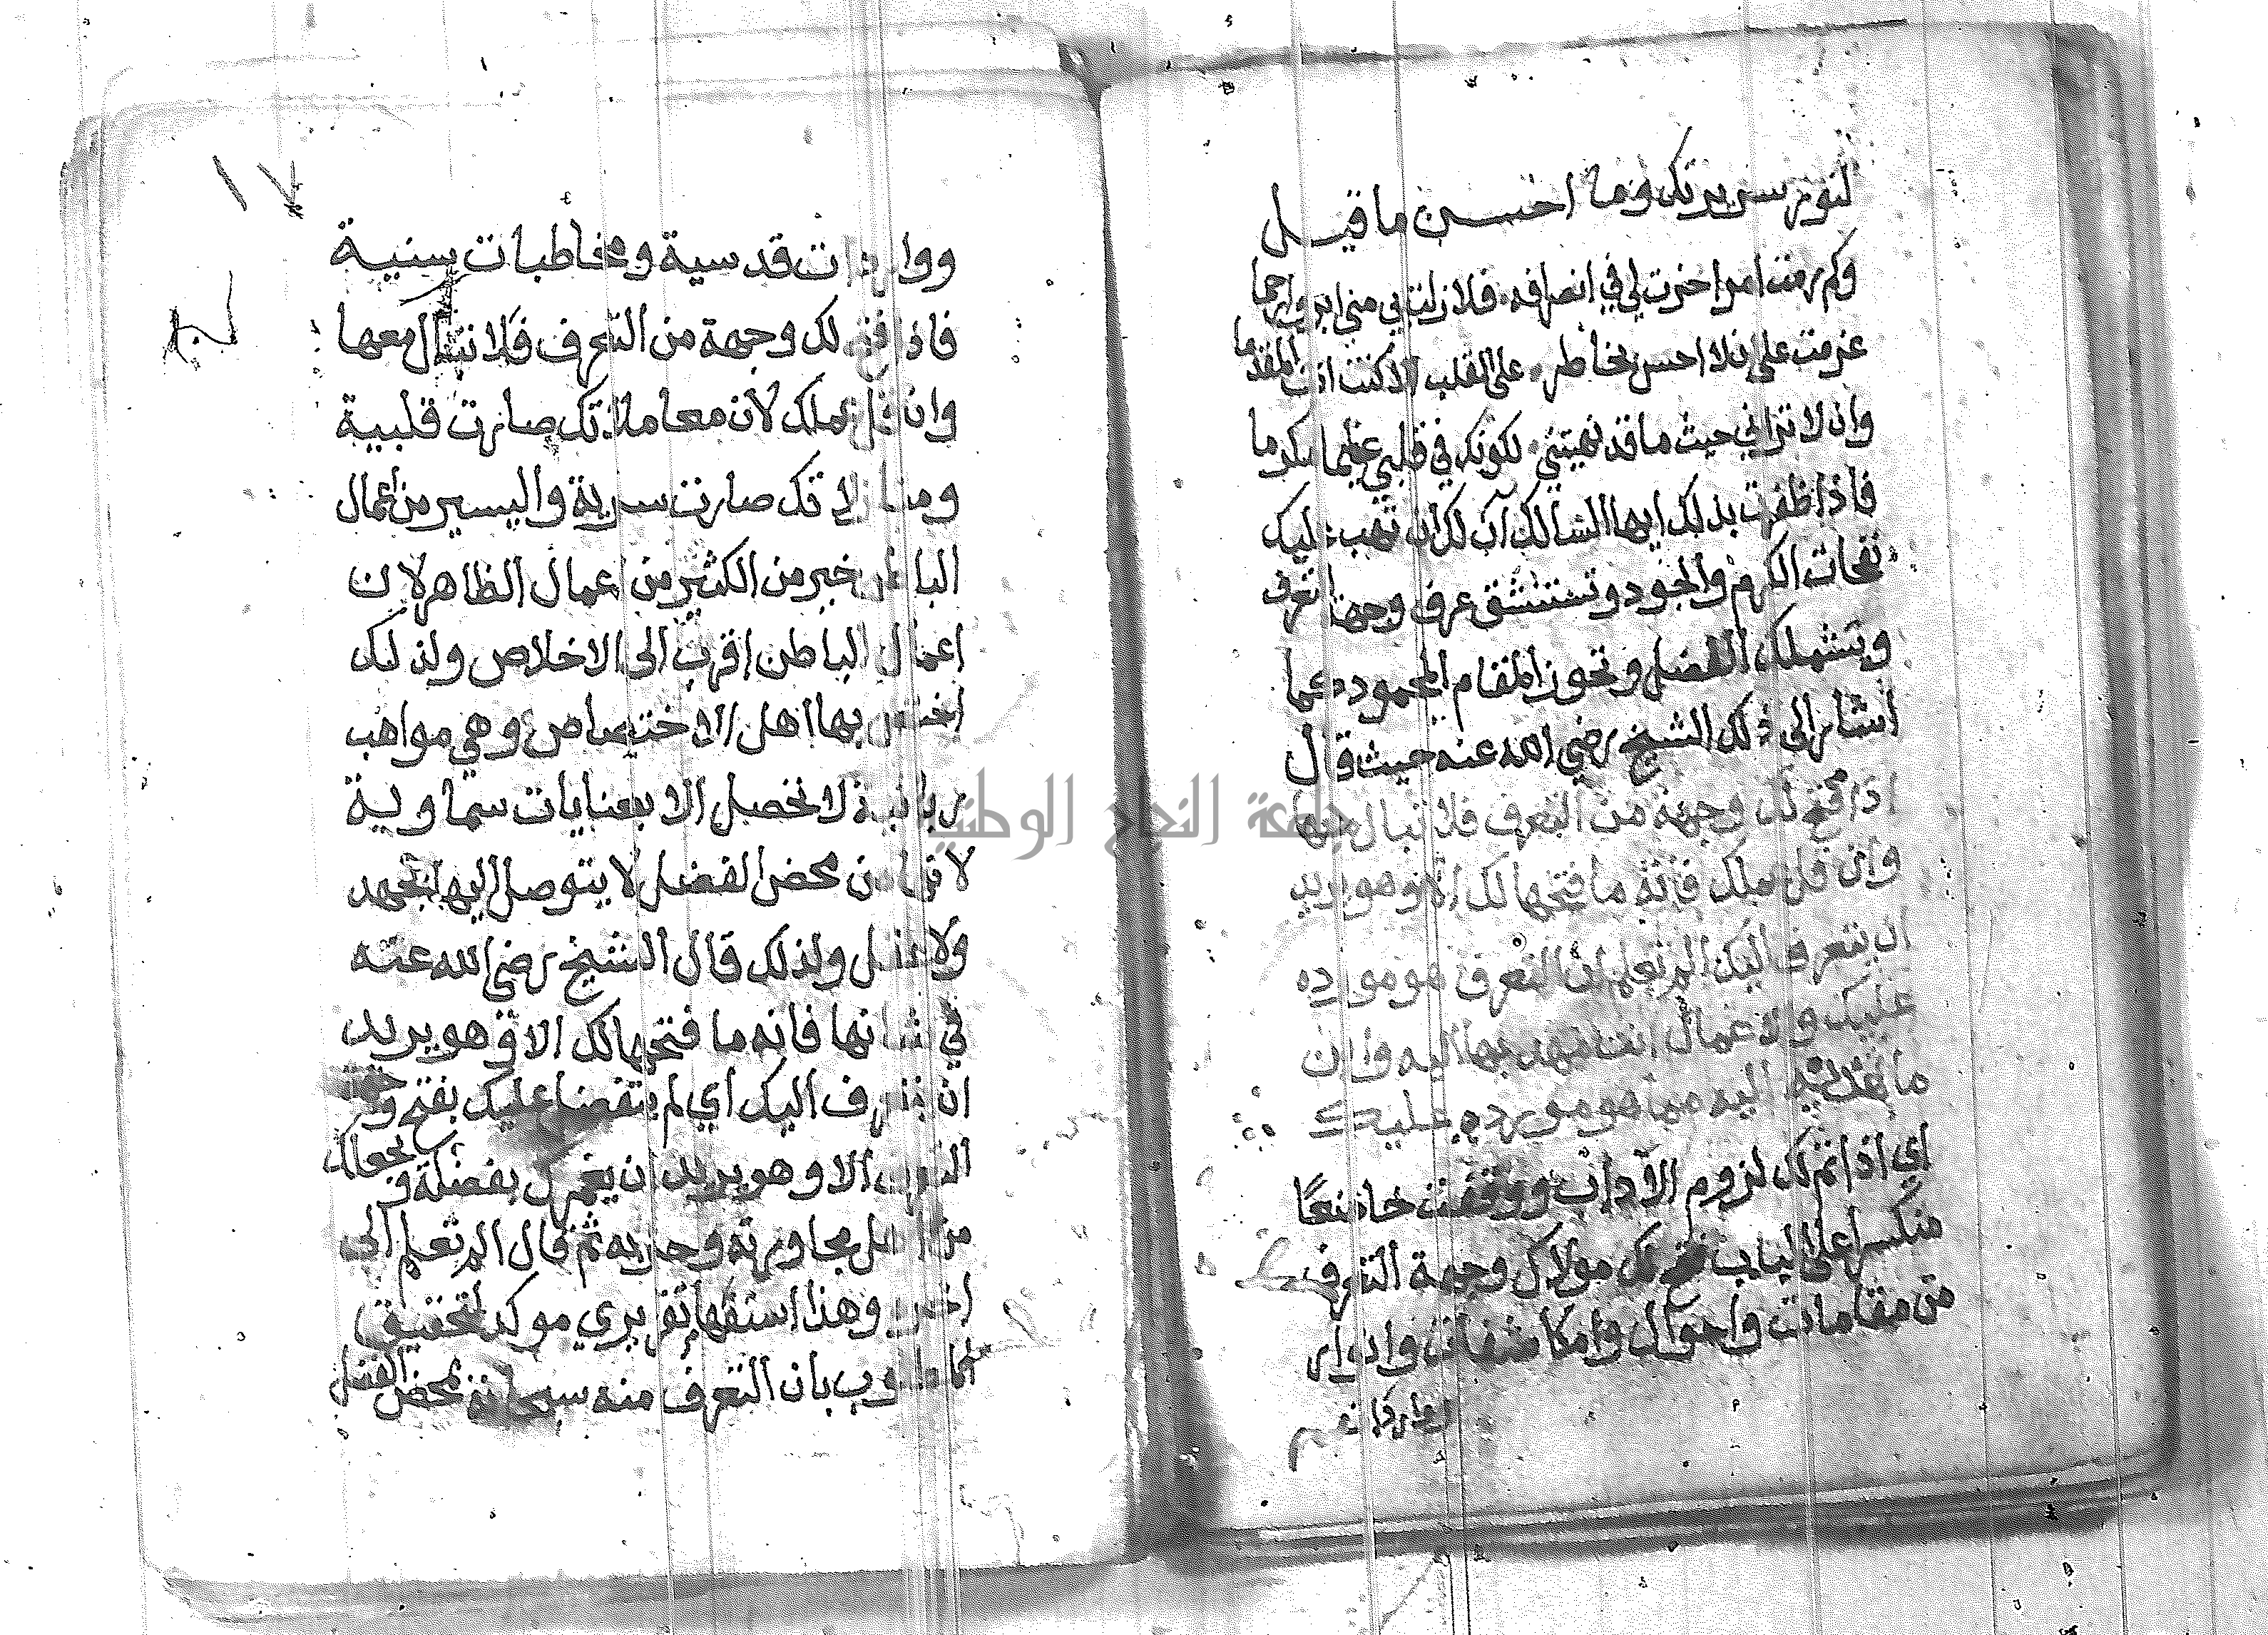 لنور سريرتك وما احسن ما قيل
وكم رمت امرا خرت لي في انصرافه فلا زلت بي مني ابر وارحما
عزمت على ان لا احس بخاطر على القلب الا كنت انت المقدما
وان لا تراني حيث ما قد نهيتني لكونك في قلبي عظيما مكرما
فاذا ظفرت بذلك ايها السالك آن لك ان تهب عليك
نفحات الكرم والجود وتستنشق عرف وجهة التعرف
ويشملك الفضل وتحوز المقام المحمود كما
اشار الى ذلك الشيخ رضي الله عنه حيث قال
اذا فتح لك وجهة من التعرف فلا تبال معها
وان قل عملك فانه ما فتحها لك الا وهو يريد
ان يتعرف اليك الم تعلم ان التعرف هو مورده
عليك والاعمال انت مهديها اليه واين
ما تهديه اليه مما هو مورده عليك
اي اذا تم لك لزوم الآداب ووقفت خاضعا
منكسرا على الباب فتح لك مولاك وجهة التعرف
من مقامات واحوال ومكاشفات وانوار
١٧
وواردات قدسية ومخاطبات سنية
فاذا فتح لك وجهة من التعرف فلا تبال معها
وان قل عملك لان معاملاتك صارت قلبية
ومنازلاتك صارت سرية واليسير من اعمال
الباطن خير من الكثير من اعمال الظاهر لان
اعمال الباطن اقرب الى الاخلاص ولذلك
اختص بها اهل الاختصاص وهي مواهب
ربانية لا تحصل الا بعنايات سماوية
لانها من محض الفضل لا يتوصل اليها بجهد
ولا عمل ولذلك قال الشيخ رضي الله عنه
في شانها فانه ما فتحها لك الا وهو يريد
ان يتعرف اليك اي لم يتفضل عليك بفتح وجهة
التعرف الا وهو يريد ان يغمرك بفضله ويجعلك
من اهل مجاورته وحزبه ثم قال الم تعلم الى
اخره وهذا استفهام تقريري موكد لتحقيق
المطلوب بان التعرف منه سبحانه بمحض الفضل
جامعة النجاح الوطنية